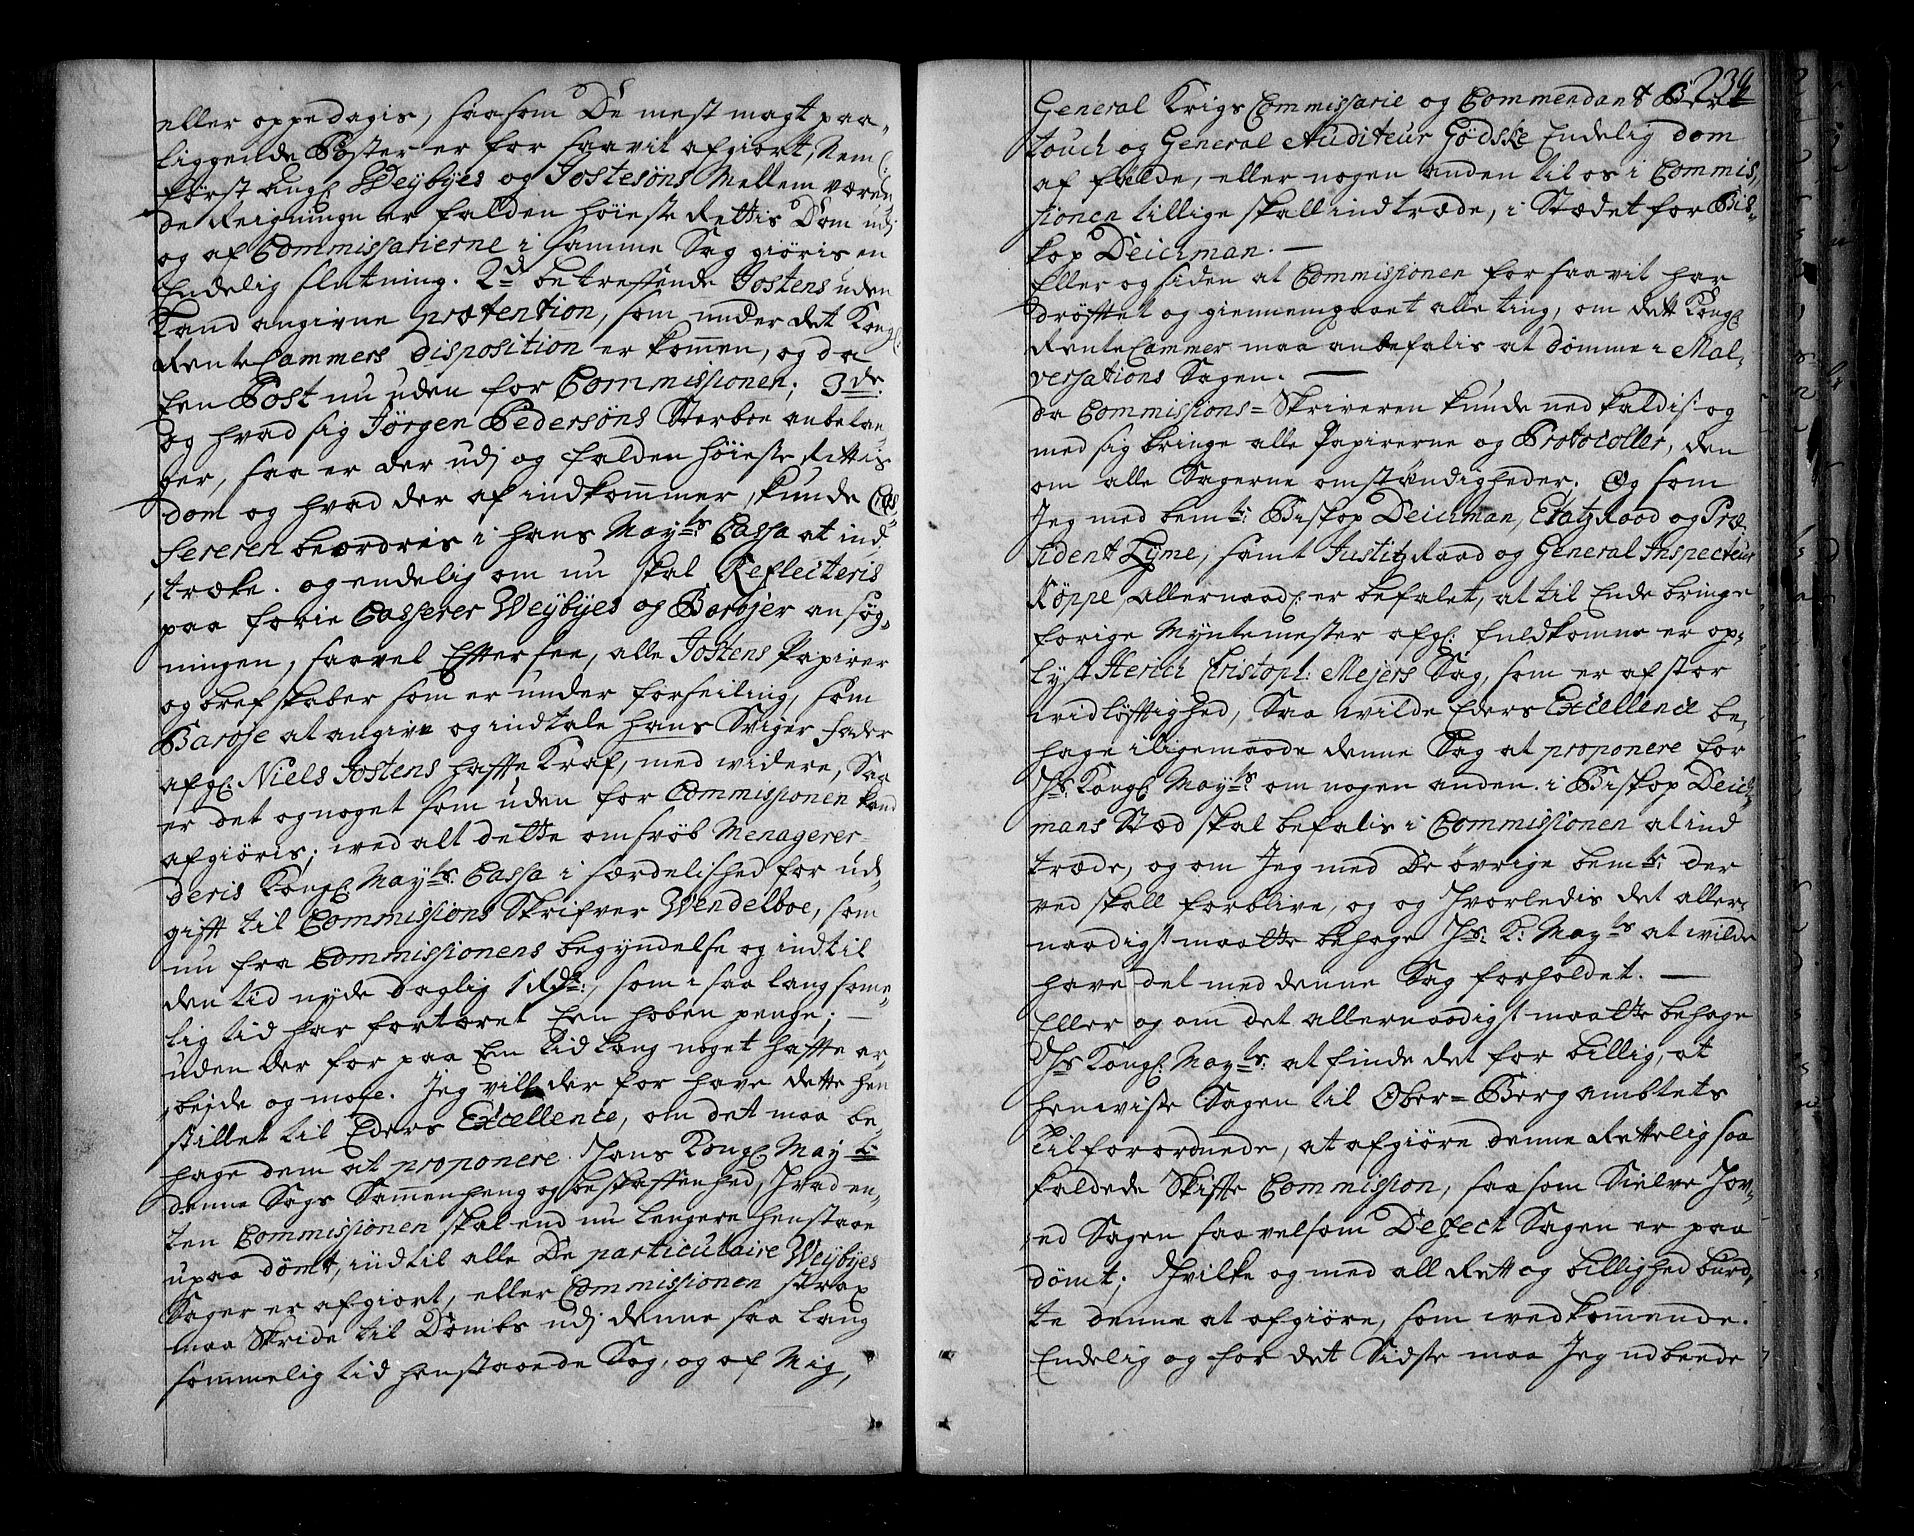 eller oppedagis, saasom De mest magt paa-
liggende Poster er for saavit afgiort, Neml:
først angl Weybyes og Jostesøns Mellem væren-
de Reigninge er falden høieste Rettis Dom udj
og af Commissarierne i samme Sag giøris en
Endelig slutning. 2de betreffende Jostens uden
Land angivne prætention, som under det Kongl:
Rente Cammers disposition er kommen, og da
Een Post nu uden for Commissionen; 3de
og hvad sig Jørgen Pedersøns Sterboe anbelan-
ger, saa er der udj og falden høieste Rettis
dom og hvad der af indkommer, kunde Cas-
sereren beordris i hans Mayts: Cassa at ind-
træke. og endelig om nu skal Reflecteris
paa forrie Casserer Weybyes og Barøjer ansøg-
ningen, saavel Efftersee, alle Jostens Papirer
og brefskaber som er under forseiling, som
Barøje at angive og indtale hans Sviger Fader
afgl: Niels Jostens haffte Kraf, med widere, Saa
er det og noget som uden for Commissionen kand
afgiøris; wed alt dette omsvøb Menagerer
deris Kongl: Mayts: Cassa i særdelished for ud-
gifft til Commissions Skrifver Wendelboe, som
nu fra Commissionens begyndelse og indtil
den tid nyde daglig 1 Rdr:, som i saa lang some-
lig tid har fortæret Een hoben penge;
uden der for paa Een tid lang noget haffte ar-
bejde og mofe. Jeg vill der for have dette hen
stillet til Eders Excellence, om det maa be-
hage dem at proponere Hans Kongl: Mayt:
denne Sags Sammenheng og beskaffenhed, Hvad en-
ten Commissionen skal end nu lengere henstaae
upaa dømt, indtil alle De particulaire Weybyes
Sager er afgiort, eller Commissionen strax
maa Skride til Dombs udj denne saa lang
sommelig tid henstaaende Sag, og af Mig,
239
General Krigs Commissarie og Commendant Ber-
touch og General Auditeur Gødske Endelig dom
af fælde, eller nogen anden til os i Commis-
sionen tillige skall indtræde, i Stædet for Bis-
kop Deichman.
Eller og siden at Commissionen for saavit har
drøfftet og giennemgaaet alle ting, om dett Kongl
Rente Cammer maa anbefalis at dømme i Mal-
versations Sagen.
da Commissions-Skriveren kunde ned kaldis og
med sig bringe alle Papirerne og Protocoller, den
om alle Sagerne omstændigheder. Og som
Jeg med bemte: Biskop Deichman, Etatz Raad og Præ-
sident Tyme, samt Justitz Raad og General Inspecteur
Köppe allernaadt: er befalet, at til Ende bringe
forige Myntemester afgl: fuldkomne er op-
lyst Henich Cristoph: Mejers Sag, som er af stor
widløfftighed, Saa wilde Eders Excellence be-
hage iligemaade denne Sag at proponere for
Hs: Kongl Mayts: om nogen anden i Biskop Deich-
mans Stæd skal befalis i Commissionen at ind
træde, og om Jeg med De øvrige bemte: der
ved skall forblive, og og Hvorledis det aller-
naadigst maatte behage Hs: K: Mayts at wilde
have det med denne Sag forholdet.
Eller og om det allernaadigst maatte behage
Hs Kongl: Mayts: at finde det for billig, at
henwiste Sagen til Ober-Berg ambtets
Tilforordnede, at afgiøre denne Rettelig saa
kaldede Skiffte Commission, saasom Sielve Hov-
ed Sagen saavelsom Defect Sagen er paa
dømt; Hvilke og med all Rett og billighed burd-
te denne at afgiøre, som wedkommende.
Endelig og for det Sidste maa Jeg udbeede